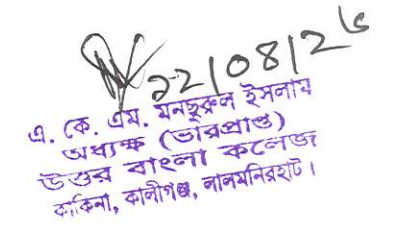 22/08/26
এ. কে. এম. মনছুরুল ইসলাম
অধ্যক্ষ (ভারপ্রাপ্ত)
উত্তর বাংলা কলেজ
কাকিনা, কালীগঞ্জ, লালমনিরহাট।